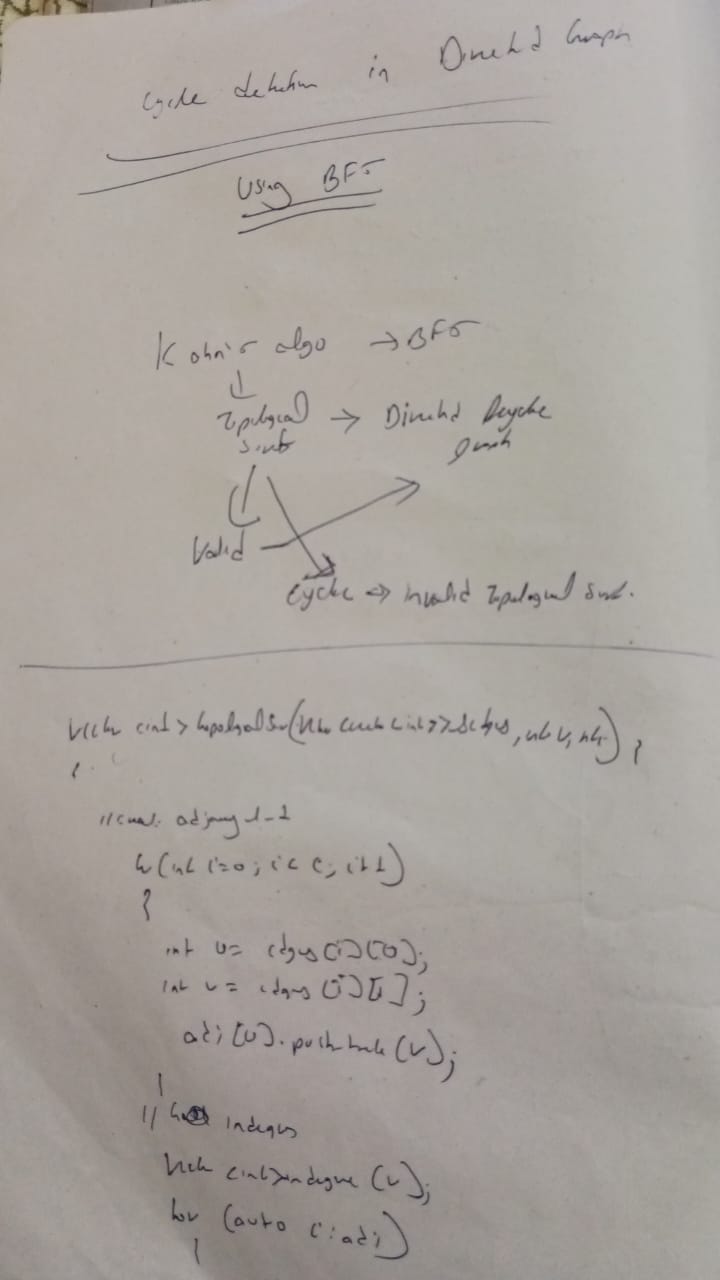 Cycle detection in Directed Graph
Using BFS
Kahn's algo → BFS
Topological → Directed Acyclic
Sort graph
Valid
Cycle → invalid Topological Sort.
vector <int> topologicalSort(vector<vector<int>>& edges, int v, int e)
{
adjacency list
for (int i=0; i< e; i++)
{
int u= edges[i][0];
int v = edges[i][1];
adj[u].push_back(v);
}
// indegree
vector <int> indegree (v);
for (auto i: adj)
{